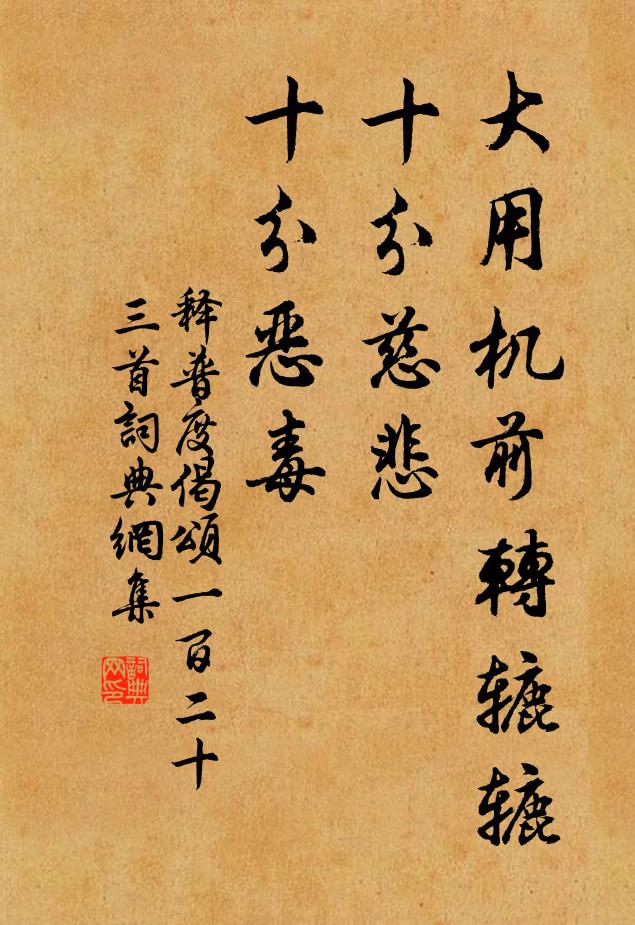 大用机前轉辘辘
十分慈悲
十分惡毒
释普度偈頌一百二十
三首詞典網集
詞典
网印